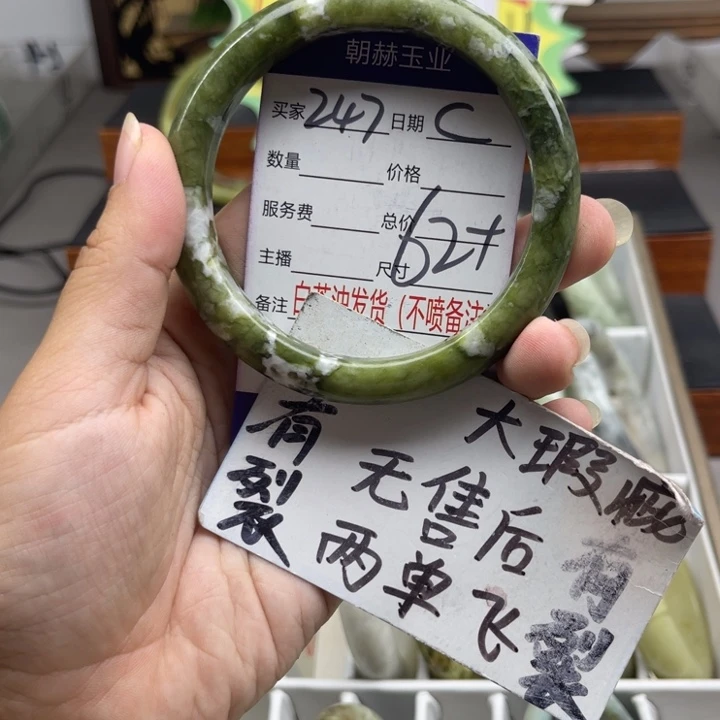 朝赫玉业
买家 247 日期 C
数量 价格
服务费 总价
主播 尺寸 62+
备注 白菜冲发货（不喷备注
有裂
大瑕疵
无售后
两单飞
有裂